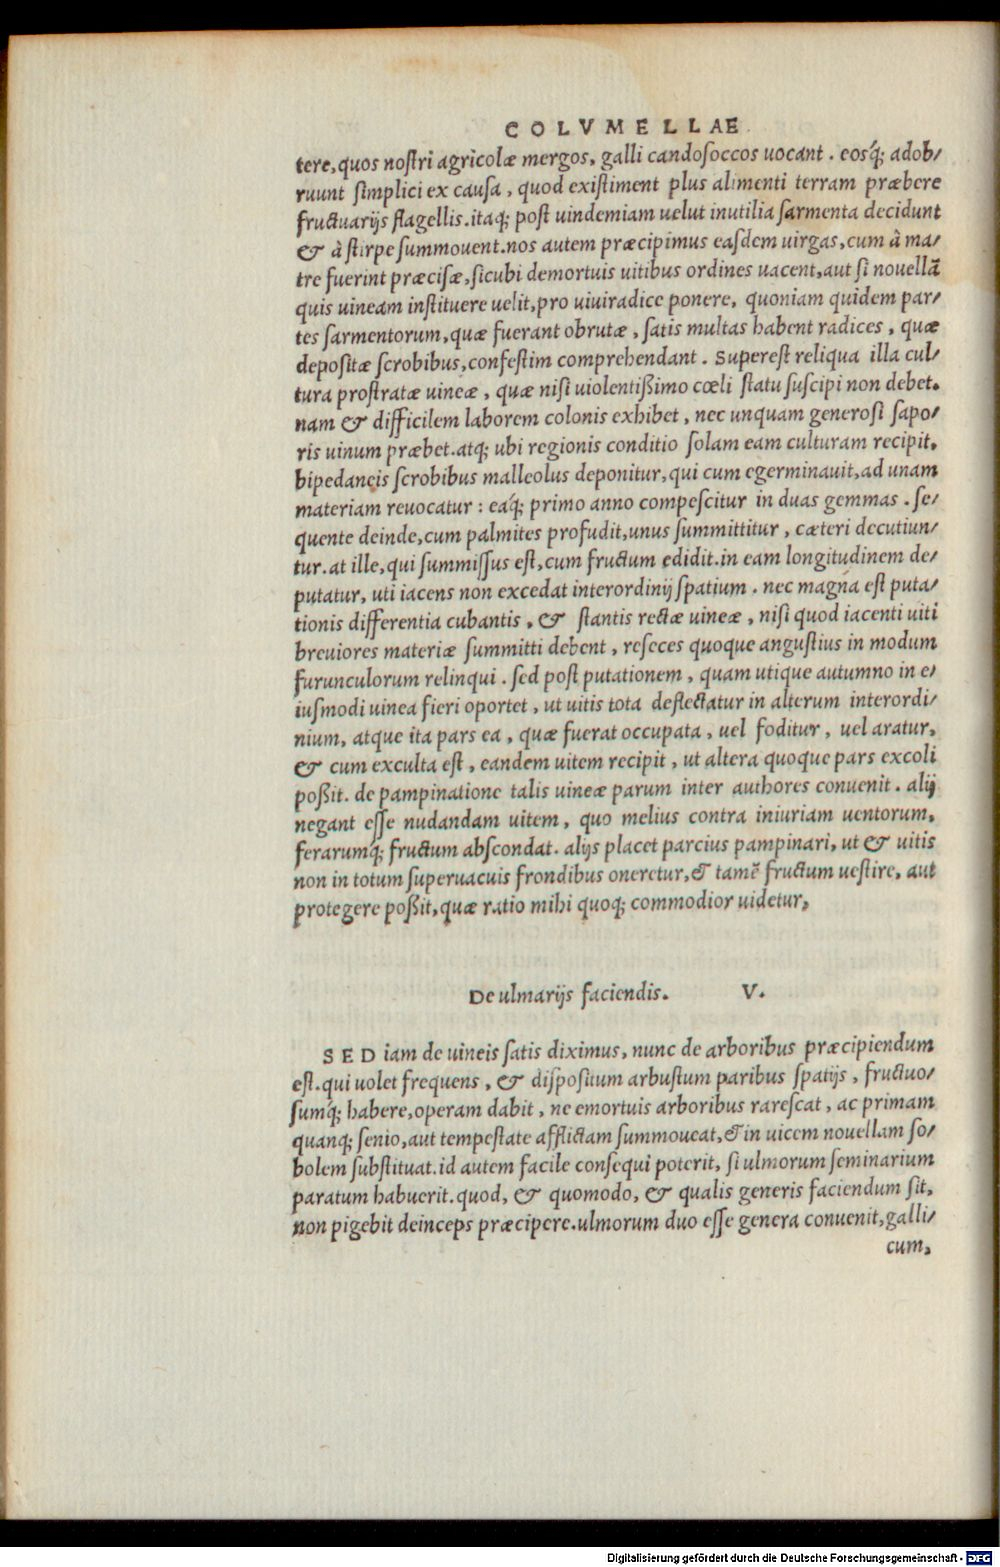 COLVMELLAE
tere, quos nostri agricolæ mergos, galli candosoccos uocant. eosq́; adob/
ruunt simplici ex causa, quod existiment plus alimenti terram præbere
fructuarijs flagellis. itaq; post uindemiam uelut inutilia sarmenta decidunt
& à stirpe summouent. nos autem præcipimus easdem uirgas, cum à ma/
tre fuerint præcisæ, sicubi demortuis uitibus ordines uacent, aut si nouellã
quis uineam instituere uelit, pro uiuiradice ponere, quoniam quidem par/
tes sarmentorum, quæ fuerant obrutæ, satis multas habent radices, quæ
depositæ scrobibus, confestim comprehendant. Superest reliqua illa cul/
tura prostratæ uineæ, quæ nisi uiolentißimo cœli statu suscipi non debet.
nam & difficilem laborem colonis exhibet, nec unquam generosi sapo/
ris uinum præbet. atq; ubi regionis conditio solam eam culturam recipit,
bipedaneis scrobibus malleolus deponitur, qui cum egerminauit, ad unam
materiam reuocatur: eaq́; primo anno compescitur in duas gemmas. se/
quente deinde, cum palmites profudit, unus summittitur, cæteri decutiun/
tur. at ille, qui summissus est, cum fructum edidit. in eam longitudinem de/
putatur, uti iacens non excedat interordinij spatium. nec magna est puta/
tionis differentia cubantis, & stantis rectæ uineæ, nisi quod iacenti uiti
breuiores materiæ summitti debent, reseces quoque angustius in modum
furunculorum relinqui. sed post putationem, quam utique autumno in e/
iusmodi uinea fieri oportet, ut uitis tota deflectatur in alterum interordi/
nium, atque ita pars ea, quæ fuerat occupata, uel foditur, uel aratur,
& cum exculta est, eandem uitem recipit, ut altera quoque pars excoli
poßit. de pampinatione talis uineæ parum inter authores conuenit. alij
negant esse nudandam uitem, quo melius contra iniuriam uentorum,
ferarumq́; fructum abscondat. alijs placet parcius pampinari, ut & uitis
non in totum superuacuis frondibus oneretur, & tamẽ fructum uestire, aut
protegere poßit, quæ ratio mihi quoq; commodior uidetur,
De ulmarijs faciendis. V.
SED iam de uineis satis diximus, nunc de arboribus præcipiendum
est. qui uolet frequens, & dispositum arbustum paribus spatijs, fructuo/
sumq́; habere, operam dabit, ne emortuis arboribus rarescat, ac primam
quanq; senio, aut tempestate afflictam summoueat, & in uicem nouellam so/
bolem substituat. id autem facile consequi poterit, si ulmorum seminarium
paratum habuerit. quod, & quomodo, & qualis generis faciendum sit,
non pigebit deinceps præcipere. ulmorum duo esse genera conuenit, galli/
cum,
Digitalisierung gefördert durch die Deutsche Forschungsgemeinschaft - DFG